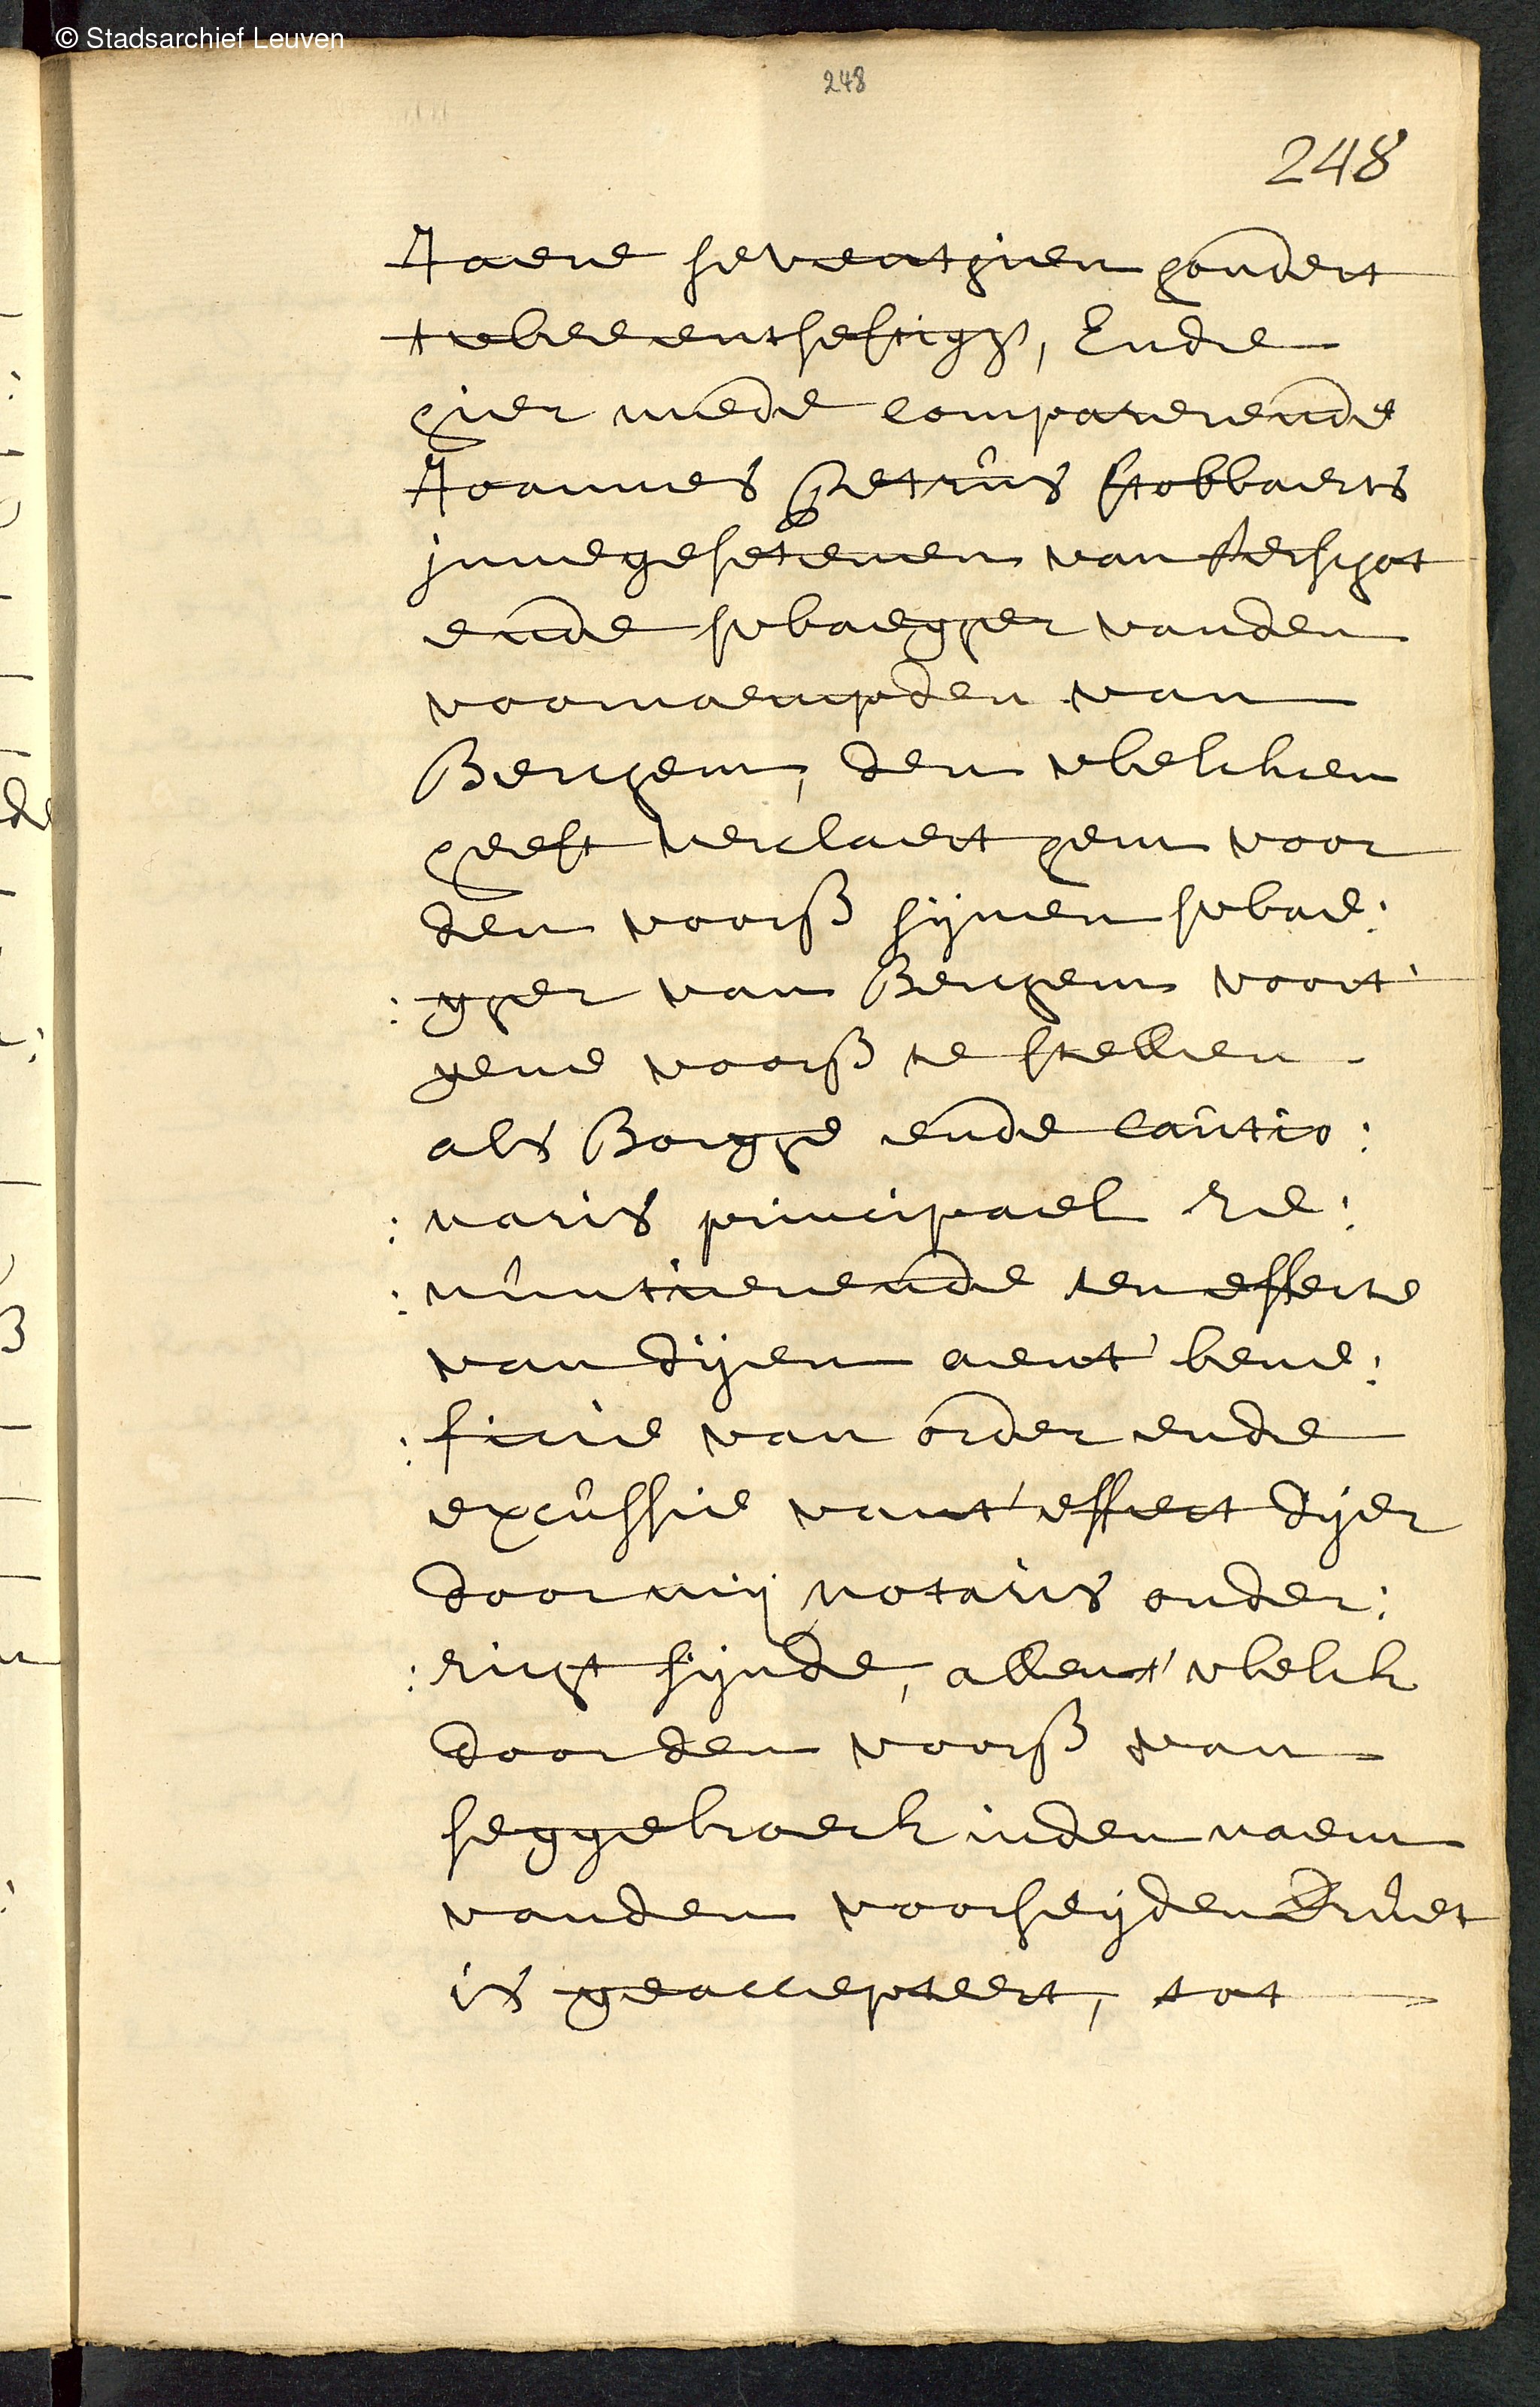 © Stadsarchief Leuven
248
248
Jaere seventhien hondert
tweeentsestigh, Ende
hier mede comparerende
Joannes Petrus Stobbaerts
innegesetenen van Aerschot
ende swaegher vanden
voornoempden van
Berchem, den welcken
heeft verclaert hem voor
den voorß sijnen swae:
:gher van Berchem voort'
gene voorß te stellen
als Borghe ende cautio:
:naris principael Re:
:nuntierende ten effecte
van dijen aent' bene:
:ficie van order ende
excussie vant' effect dijer
door mij notaris onder:
:richt sijnde, allent' welck
door den voorß van
seggelraeck inden naem
vanden voorseijden Druet
is geaccepteert, tot